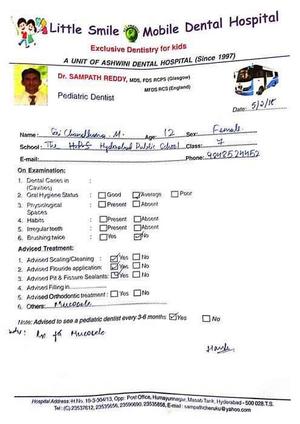 Little Smile Mobile Dental Hospital
Exclusive Dentistry for kids
A UNIT OF ASHWINI DENTAL HOSPITAL (Since 1997)
Dr. SAMPATH REDDY, MDS, FDS RCPS (Glasgow)
MFDS RCS (England)
Pediatric Dentist
Date: 5/2/18
Name: Sri M. Age: 12 Sex: Female
School: The Hyderabad Public School Class: 7
E-mail: Phone:
On Examination:
1. Dental Caries in (Cavities)
2. Oral Hygiene Status Good Average Poor
3. Physiological Spaces Present Absent
4. Habits Present Absent
5. Irregular teeth Present Absent
6. Brushing twice Yes No
Advised Treatment:
1. Advised Scaling/Cleaning : Yes No
2. Advised Flouride application: Yes No
3. Advised Pit & Fissure Sealants: Yes No
4. Advised Filling in
5. Advised Orthodontic treatment : Yes No
6. Others: Mucocele
Note: Advised to see a pediatric dentist every 3-6 months Yes No
for Mucocele
Hospital Address: H.No. 16-3-304/13, Opp: Post Office, Humayunnagar, Masab Tank, Hyderabad - 500 028.T.S.
Tel: (C) 23537612, 23535656, 23590690, 23535858, E-mail : sampathcheruku@yahoo.com